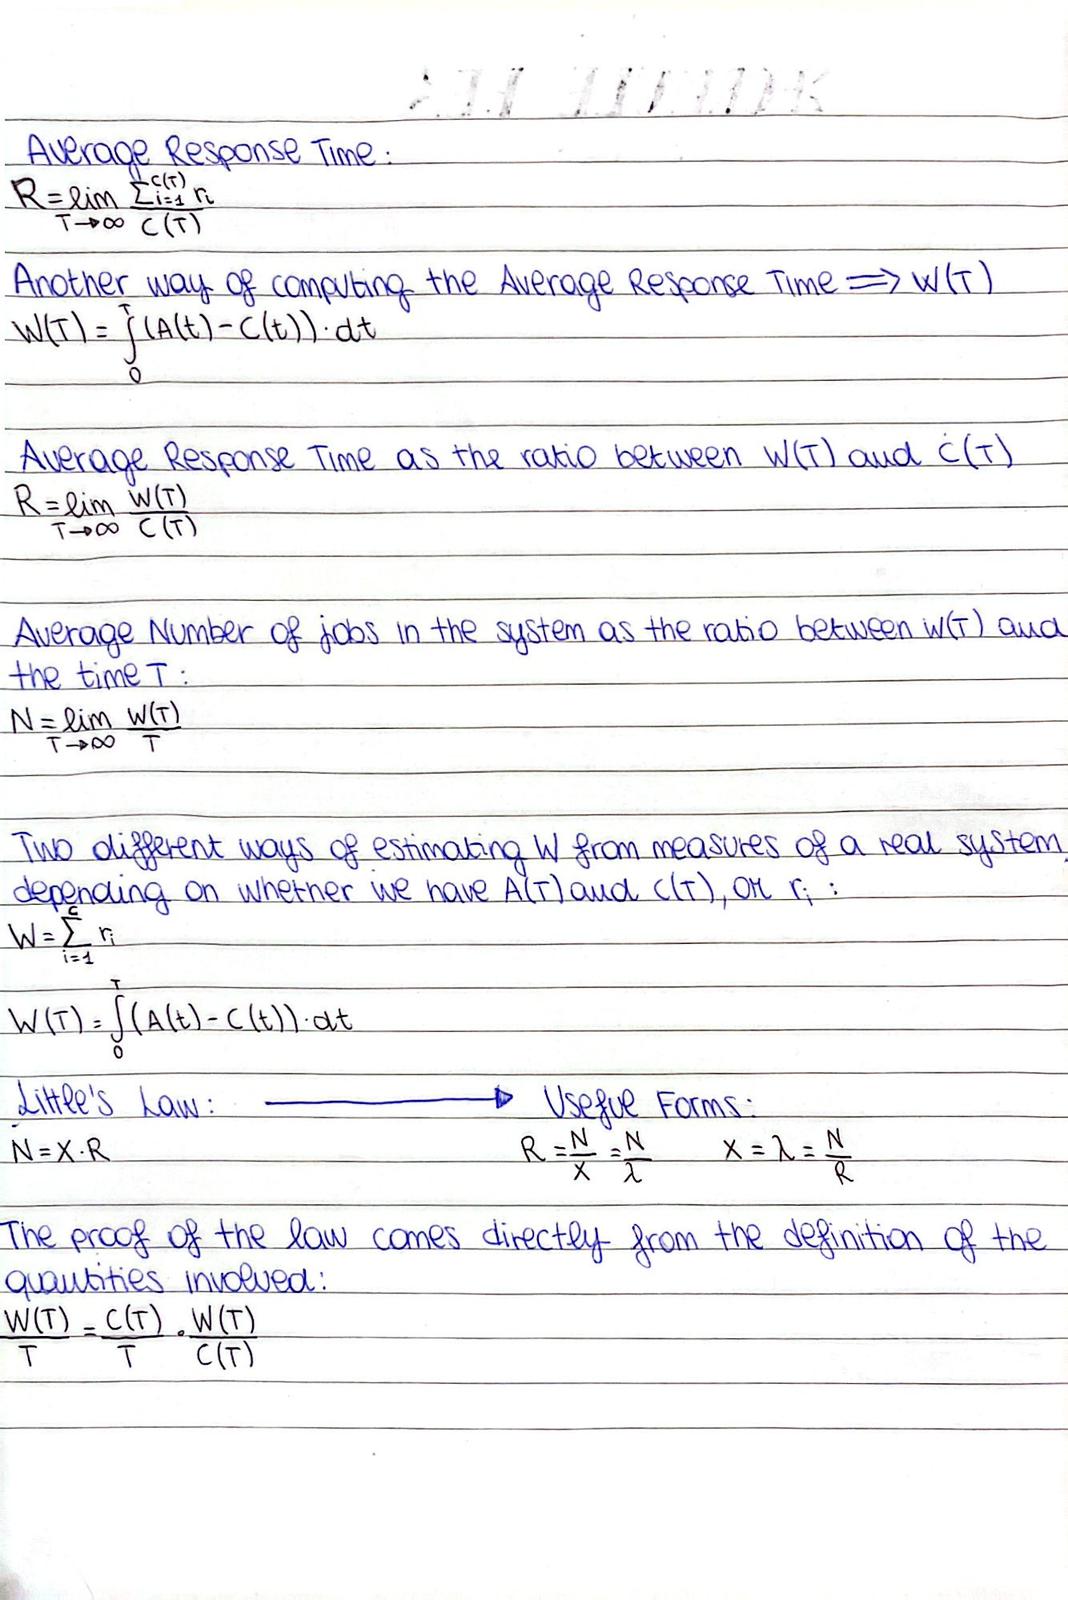 Average Response Time:
R = lim T→∞ ∑_{i=1}^{C(T)} r_i / C(T)
Another way of computing the Average Response Time ⟹ W(T)
W(T) = ∫_0^T (A(t) - C(t)) · dt
Average Response Time as the ratio between W(T) and C(T)
R = lim T→∞ W(T) / C(T)
Average Number of jobs in the system as the ratio between W(T) and
the time T:
N = lim T→∞ W(T) / T
Two different ways of estimating W from measures of a real system,
depending on whether we have A(T) and C(T), or r_i:
W = ∑_{i=1}^{C} r_i
W(T) = ∫_0^T (A(t) - C(t)) · dt
Little's Law: → Useful Forms:
N = X · R R = N/X = N/λ X = λ = N/R
The proof of the law comes directly from the definition of the
quantities involved:
W(T)/T = C(T)/T · W(T)/C(T)